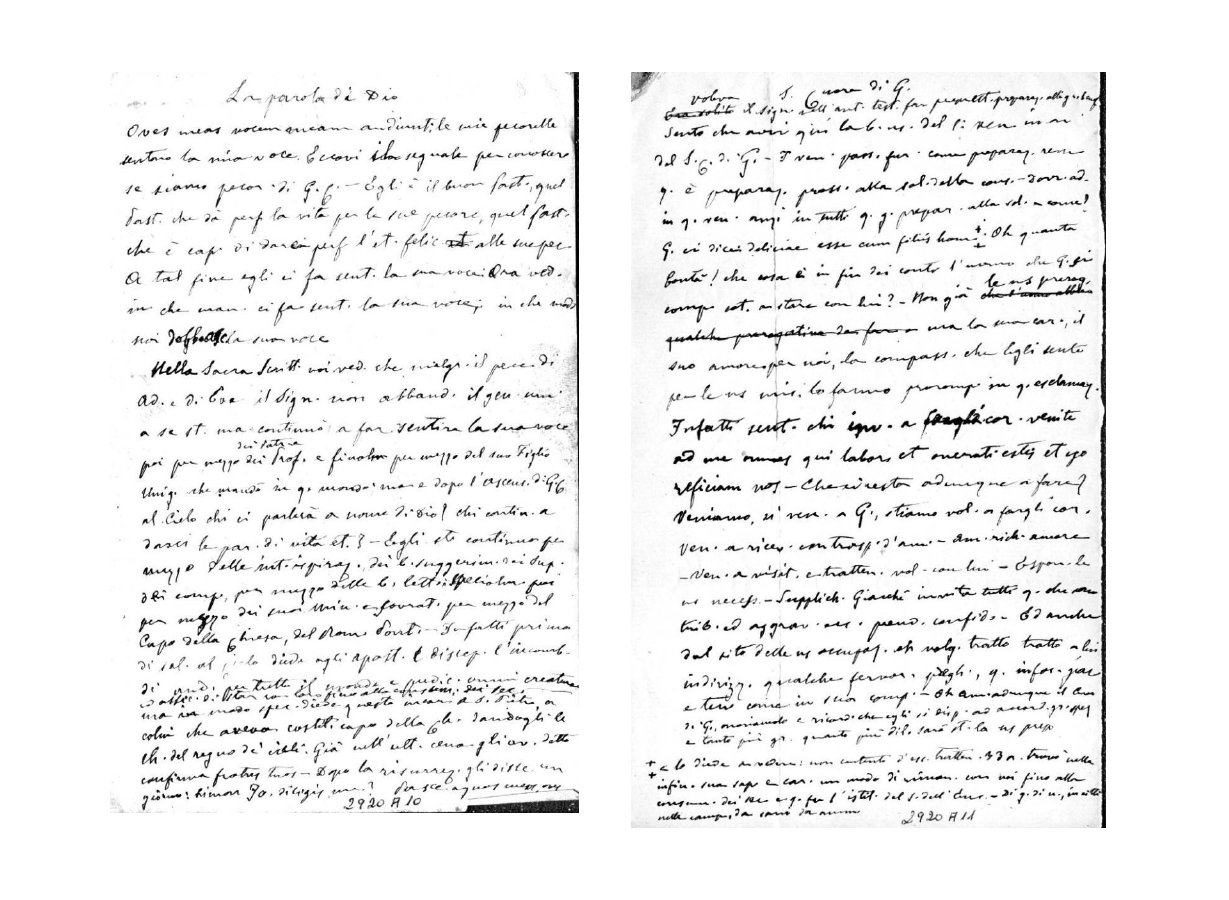 La parola di Dio
Oves meas vocem meam audiunt: le mie pecorelle
sentono la mia voce. Eccovi il segnale per conoscere
se siamo pecor. di G. C. – Egli è il buon Past., quel
Past. che dà perf. la vita per le sue pecore, quel Past.
che è cap. di dare perf. l'et. felic. alle sue pec
A tal fine egli ci fa sent. la sua voce: Ora ved.
in che man. ci fa sent. la sua voce; in che mod
noi la sua voce
Nella Sacra Scritt. noi ved. che malgr. il pecc. di
Ad. e di Eva il Sign. non abband. il gen. um.
a se st. ma continuò a far sentire la sua voce
dei Patria
poi per mezzo dei Prof. e finalm per mezzo del suo Figlio
Unig. che mandò in q. mondo: ma e dopo l'ascens. di G C
al Cielo chi ci parlerà a nome di Dio? chi contin. a
darci le par. di vita et.? – Egli st. continuò per
mezzo delle int. ispiraz. dei b. suggerim. dei Sup.
dei comp., per mezzo delle b. lett. specialm. poi
per mezzo dei suoi Min. e sovrat. per mezzo del
Capo della Chiesa, del Rom. Pont. – Infatti prima
di sal. al cielo diede agli Apost. e Discep. l'incomb.
di and. per tutto il mondo e predic. omni creature
ed assic. di star con loro fino alla consum. dei sec.
ma in modo spec. diede questo incar. a S. Pietro, a
colui che aveva costit. capo della Ch. dandogli le
ch. del regno de' cieli. Già nell'ult. cena gli av. detto
confirma fratres tuos – Dopo la risurrez. gli disse un
giorno: Simon Jo. diligis me? Pasce agnos meos, oves
2920 A 10
S. Cuore di G.
voleva
Era solito il Sign. nell'ant. test. far preced. preparaz. alle
Sento che avvi qui la b. us. del 1: ven. in on
del S. C. di G. – I ven. pass. fur. come preparaz. remo
q. è preparaz. pross. alla sol. della cons. – dovr. ad.
in q. ven. anzi in tutti q. g. prepar. alla sol. e come?
G. ci dice: deliciae esse cum filiis homi. Oh quanta
bontà! che cosa è in fin dei conti l'uomo che G. si
le ns prerog.
comp. sot. a stare con lui? – Non già che l'uomo abbia
qualche prerogativa da far a ma la sua car., il
suo amore per noi, la compass. che Egli sente
per le ns mis. lo fanno proromp. in q. esclamaz.
Infatti sent. chi inv. a far cor. venite
ad me omnes qui labora et onerati estis et ego
reficiam vos – Che ci resta adunque a fare?
Veniamo, si ven. a G., stiamo vol. a fargli cor.
ven. a ricev. contrasp. d'am. – am. rich. amore
– Ven. a visit. e tratten. vol. con lui – Espon. le
ns necess. – Supplich. Giacchè invita tutti q. che son
trib. ed aggrav. acc. pien. confid. – Ed anche
dal sito delle ns occupaz. oh volg. tratto tratto a lui
indirizz. qualche fervor.
e tener come in sua comp. – Oh am. adunque il Cuor
di G., onoriamolo e ricord. che egli si disp. ad accord.
e tanto più gr. quanto più dil. sarà st. la ns prep
e lo diede a vedere: non contento d'ess. tratten. 33 a. trovò nella
infin. sua sap. e car. un modo di riman. con noi fino alla
consum. dei sec e q. fu l'istit. del S. dell'Euc. – Di g. di n., in città
nelle camp., da sano da amm
2920 A 11